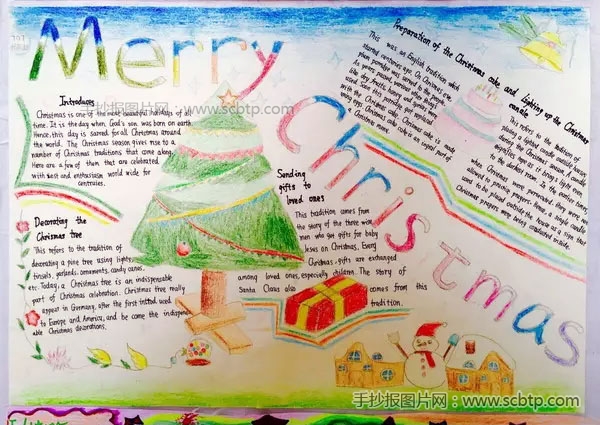 Merry
Christmas
Introduces
Christmas is one of the most beautiful holidays of all
time. It is the day when God's son was born on earth
Hence, this day is sacred for all Christmas around
the world. The Christmas season gives rise to a
number of Christmas traditions that come along
Here are a few of them that are celebrated
with zest and enthusiasm world wide for
centruies.
Decorating the
Chrismas tree
This refers to the tradition of
decorating a pine tree using lights
tinsels, garlands, ornaments, candy canes,
etc. Today, a Christmas tree is an indispensable
part of Christmas celebration. Christmas tree really
appear in Germany, after the first united, used
to Europe and America, and be come the indispen
ble Christmas decorations.
Sending
gifts to
loved ones
This tradition comes from
the story of the three wise
men who got gifts for baby
Jesus on Christmas, Every
Christmas gifts are exchanged
among loved ones, especially children. The story of
Santa Claus also comes from this
tradition.
Preparation of the Christmas cake and Lighting up the Christmas
candle
This was an English tradition which
started centuries ago. On Christmas eve
plum porridge was served to the people.
As years passed various other things
like dry fruits, honey and spices were
used. Soon this porridge was replaced
with the Christmas cake. Christmas cake is made
using eggs Christmas cake cake is an important part of
a Christmas menu.
This refers to the tradition of
placing a lighted candle outside a house
during the Christmas season. A candle
signifies hope as it brings light even
to the darkest room. In the earlier times
when Christmas were persecuted they were not
allowed to practice prayers. Hence, a single candle
used to be placed outside the house as a sign that
Christmas prayers were being conducted inside.
手抄报图片网：www.scbtp.com
手抄报图片网：www.scbtp.com